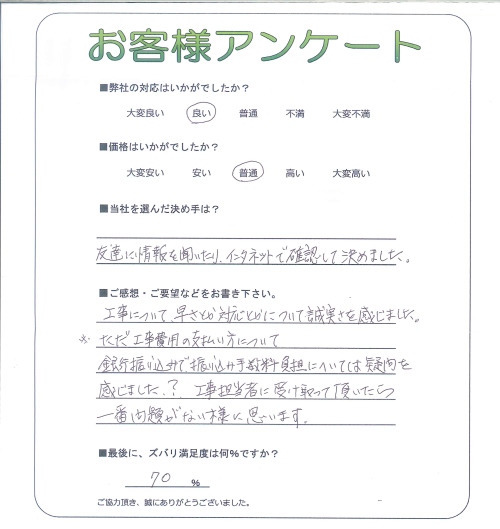 お客様アンケート
■弊社の対応はいかがでしたか？
大変良い 良い 普通 不満 大変不満
■価格はいかがでしたか？
大変安い 安い 普通 高い 大変高い
■当社を選んだ決め手は？
友達に情報を聞いたり、インタネットで確認して決めました。
■ご感想・ご要望などをお書き下さい。
工事について、早さとか対応とかについて誠実さを感じました。
※ ただ工事費用の支払い方について
銀行振り込みで振り込み手数料負担については疑問を
感じました.？ 工事担当者に受け取って頂いたら
一番問題がない様に思います。
■最後に、ズバリ満足度は何%ですか？
70 %
ご協力頂き、誠にありがとうございました。